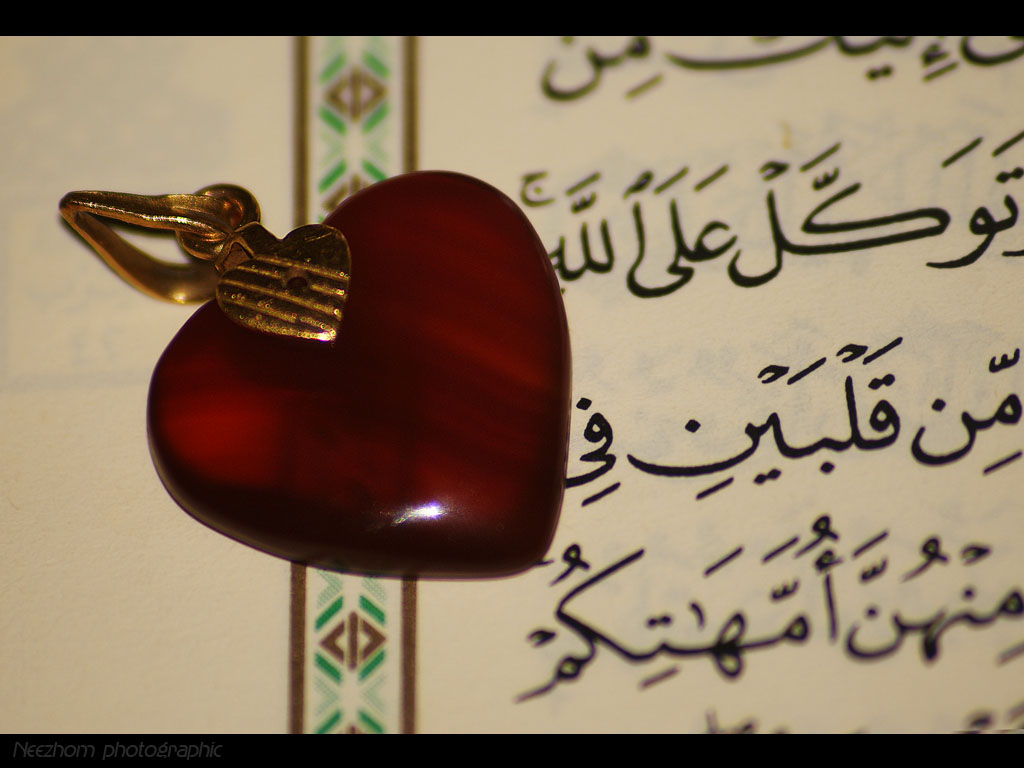 إِلَيْكَ مِن
تَوَكَّلْ عَلَى ٱللَّهِ ۚ
مِّن قَلْبَيْنِ فِى
مِنْهُنَّ أُمَّهَـٰتِكُمْ
Neezhom photographic